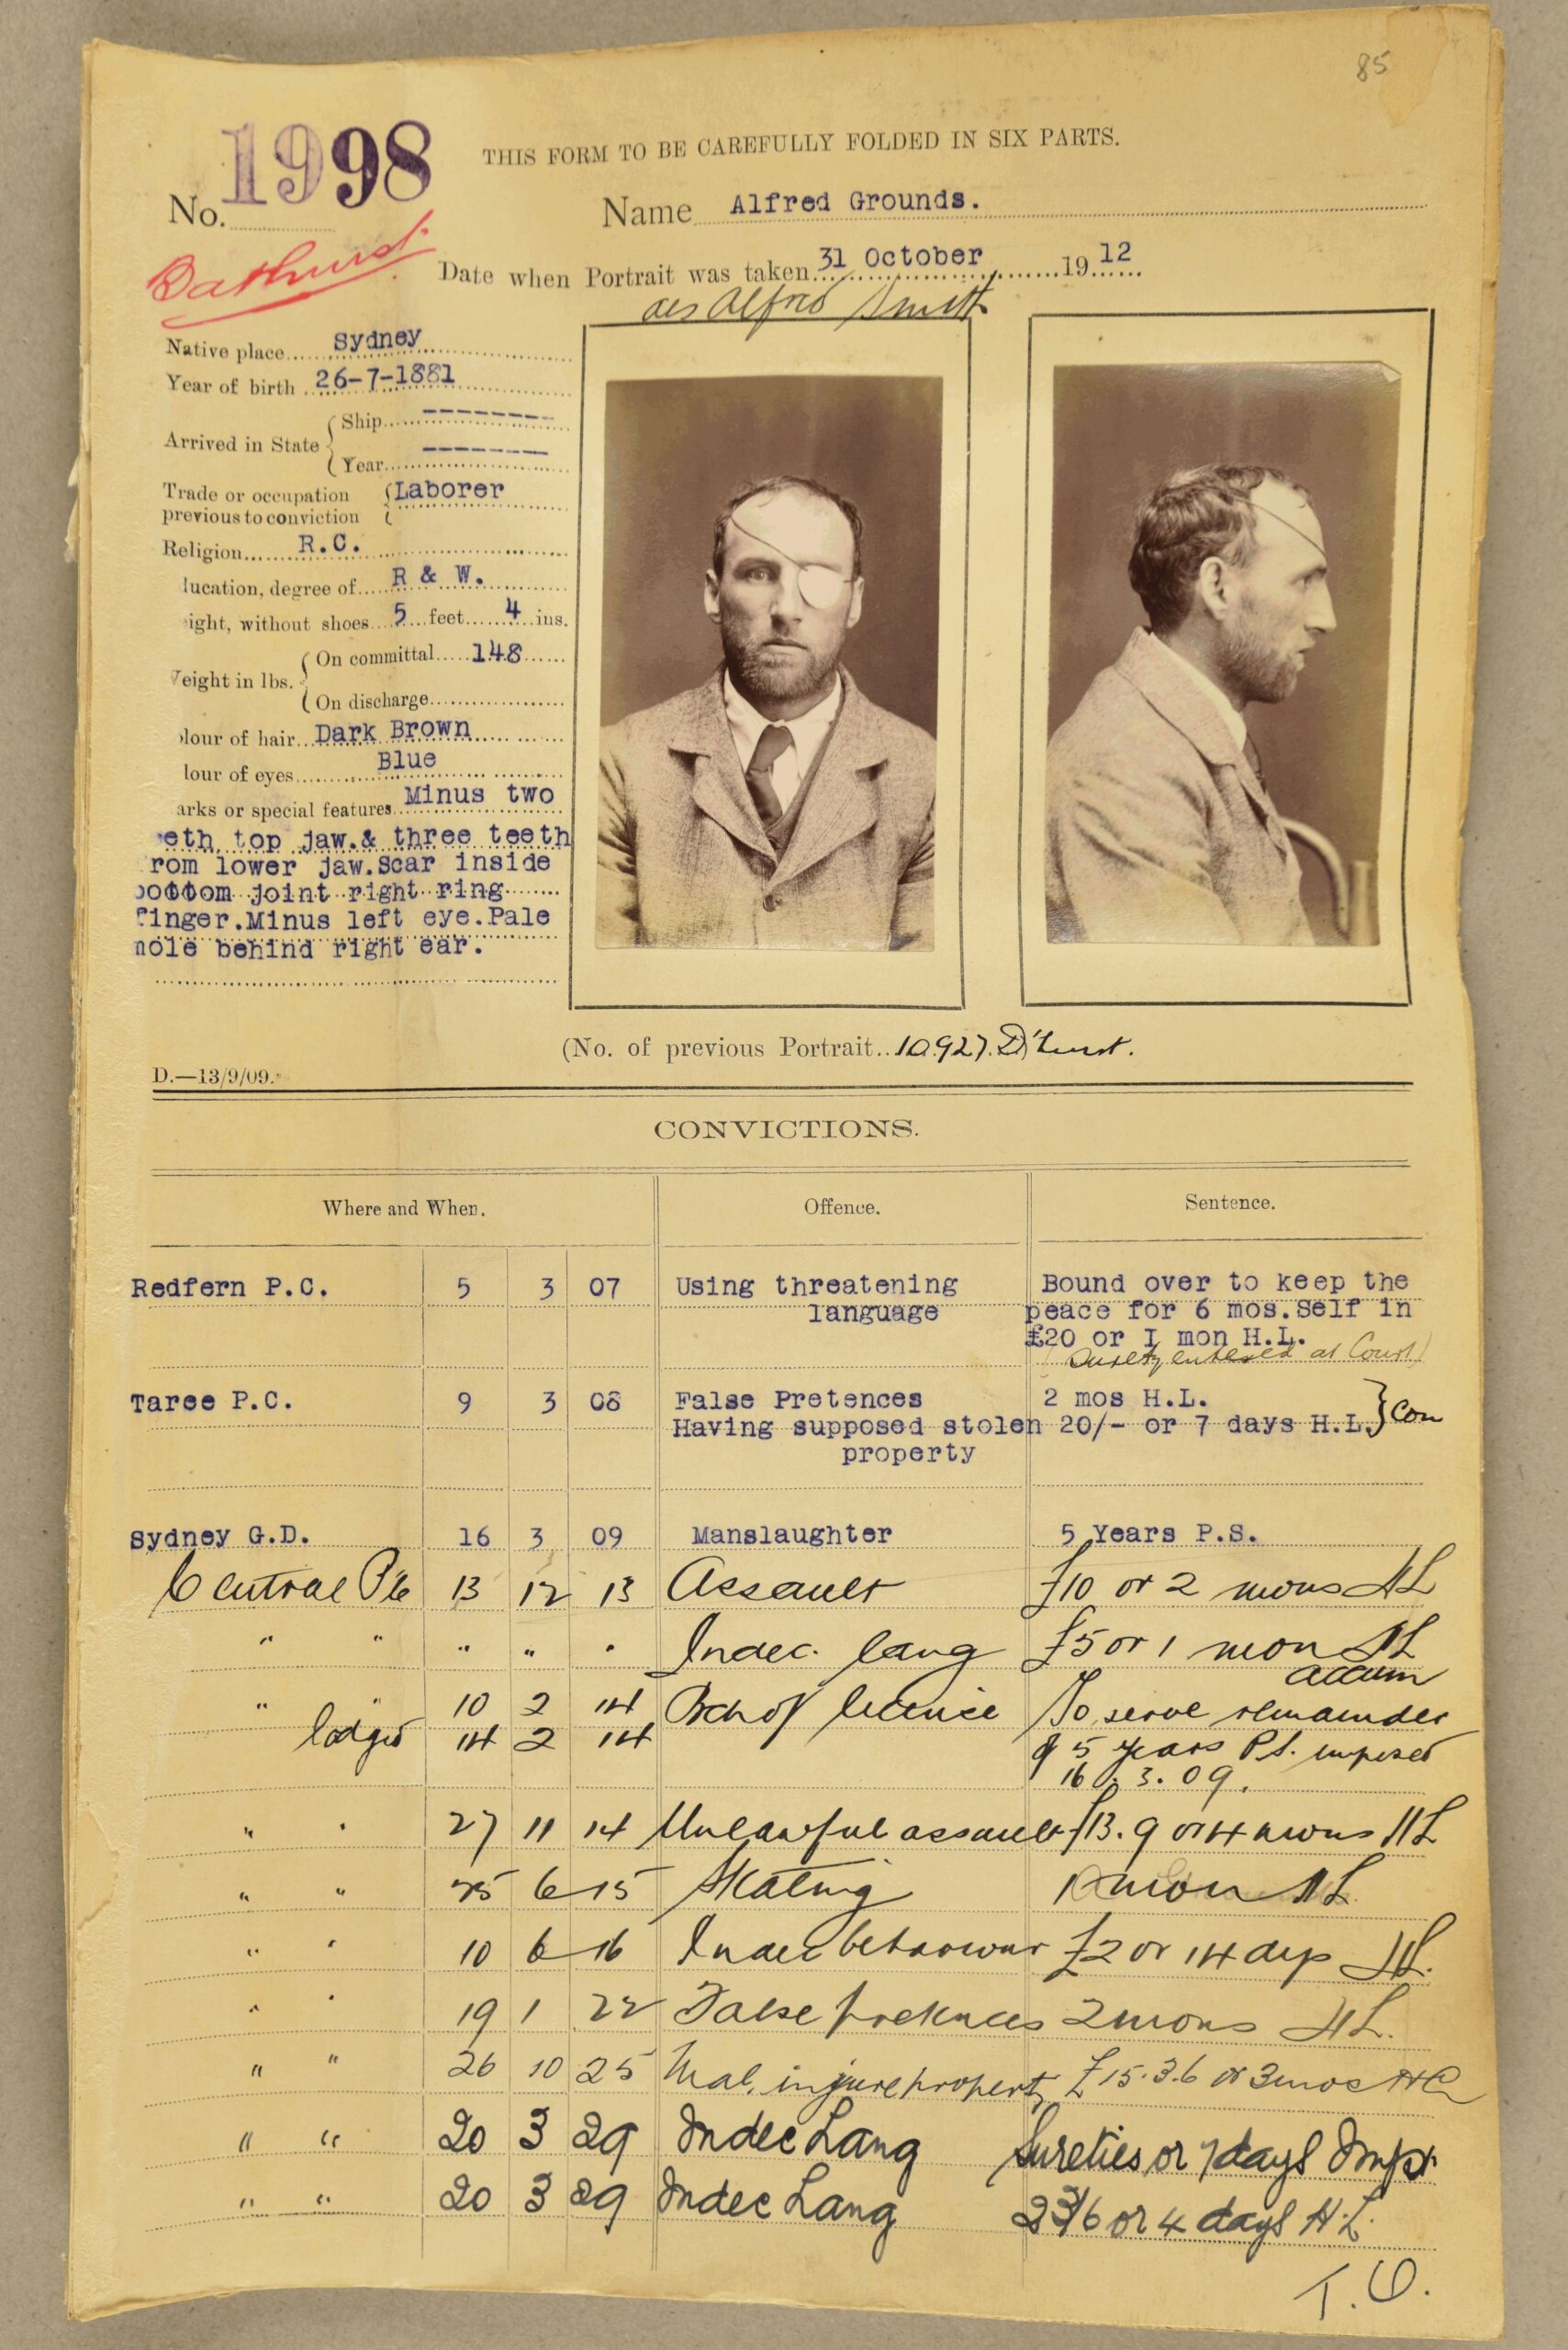 85
1998
THIS FORM TO BE CAREFULLY FOLDED IN SIX PARTS.
No.
Name Alfred Grounds.
Bathurst.
Date when Portrait was taken 31 October 1912
als Alfred Smith
Native place Sydney
Year of birth 26-7-1881
Arrived in State { Ship
Year
Trade or occupation previous to conviction { Laborer
Religion R.C.
ducation, degree of R & W.
ight, without shoes 5 feet 4 ins.
eight in lbs. { On committal 148
On discharge
lour of hair Dark Brown
lour of eyes Blue
arks or special features Minus two
eeth top jaw.& three teeth
rom lower jaw.Scar inside
bottom joint right ring
finger.Minus left eye.Pale
mole behind right ear.
(No. of previous Portrait 10.927. D'hurst.
D.—13/9/09.
CONVICTIONS.
Where and When. Offence. Sentence.
Redfern P.C. 5 3 07 Using threatening Bound over to keep the
language peace for 6 mos.Self in
£20 or I mon H.L.
(Surety entered at Court)
Taree P.C. 9 3 08 False Pretences 2 mos H.L. } Con
Having supposed stolen 20/- or 7 days H.L.
property
Sydney G.D. 16 3 09 Manslaughter 5 Years P.S.
Central P.C 13 12 13 Assault £10 or 2 mons HL
" " " " " Indec. lang £5 or 1 mon HL
accum
" " 10 2 14 Bch of licence To serve remainder
lodged 14 2 14 of 5 years P.S. imposed
16. 3. 09.
" " 27 11 14 Unlawful assault £13.9 or 4 mons HL
" " 25 6 15 Stealing mon HL
" " 10 6 16 Indec behaviour £2 or 14 dys HL.
" " 19 1 22 False pretences 2 mons HL.
" " 26 10 25 Mal. injure property £15.3.6 or 3 mos
" " 20 3 29 Indec Lang Sureties or 7 days Impt
" " 20 3 29 Indec Lang /6 or 4 days H.L.
T.O.